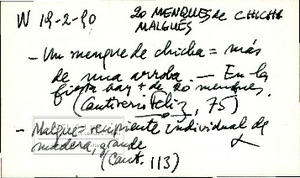 W 19-2-90 20 MENQUES de CHICHA
MALQUES
- Un menque de chicha = más
de una arroba. - En la
fiesta hay + de 20 menques.
(Cantiveri Feliz, 75)
- Malque = recipiente individual de
madera, grande
(Cant. 113)